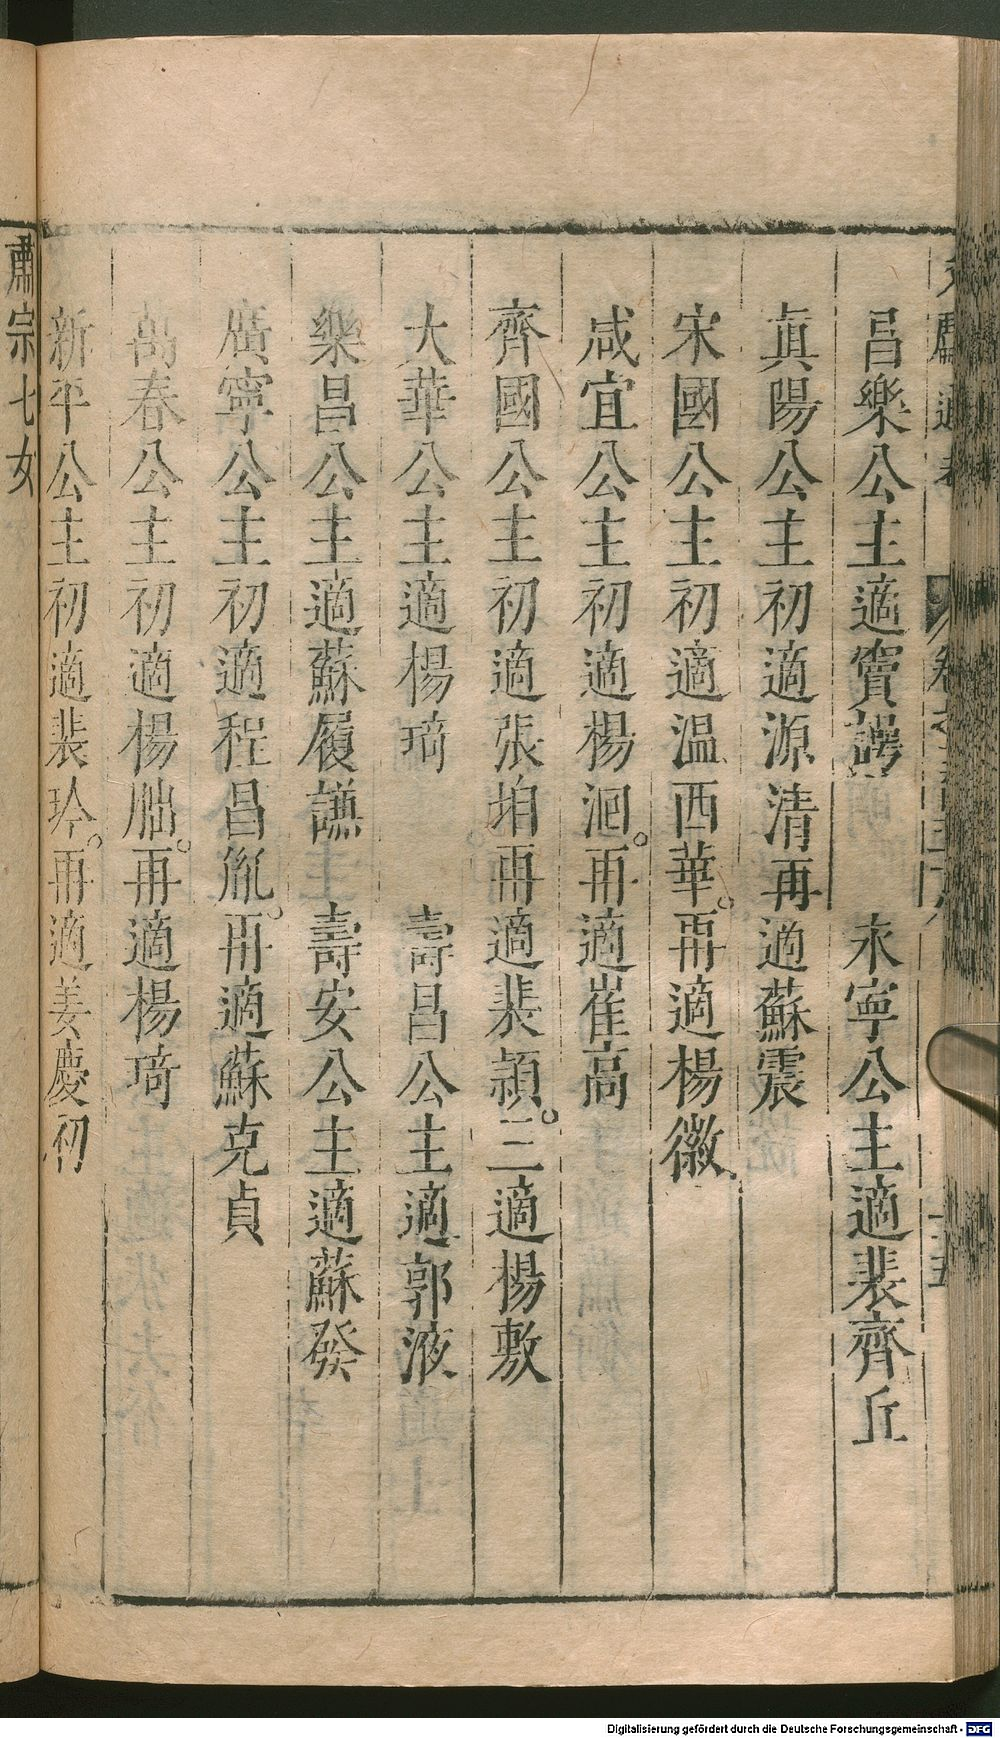 昌樂公主適竇鍔 永寧公主適裴齊丘
真陽公主初適源清再適蘇震
宋國公主初適温西華。再適楊徽
咸宜公主初適楊洄。再適崔嵩
齊國公主初適張垍再適裴頴。三適楊敷
大華公主適楊錡 壽昌公主適郭液
樂昌公主適蘇履謙 壽安公主適蘇發
廣寧公主初適程昌胤。再適蘇克貞
萬春公主初適楊朏。再適楊錡
新平公主初適裴玪。再適姜慶初
肅宗七女
Digitalisierung gefördert durch die Deutsche Forschungsgemeinschaft - DFG